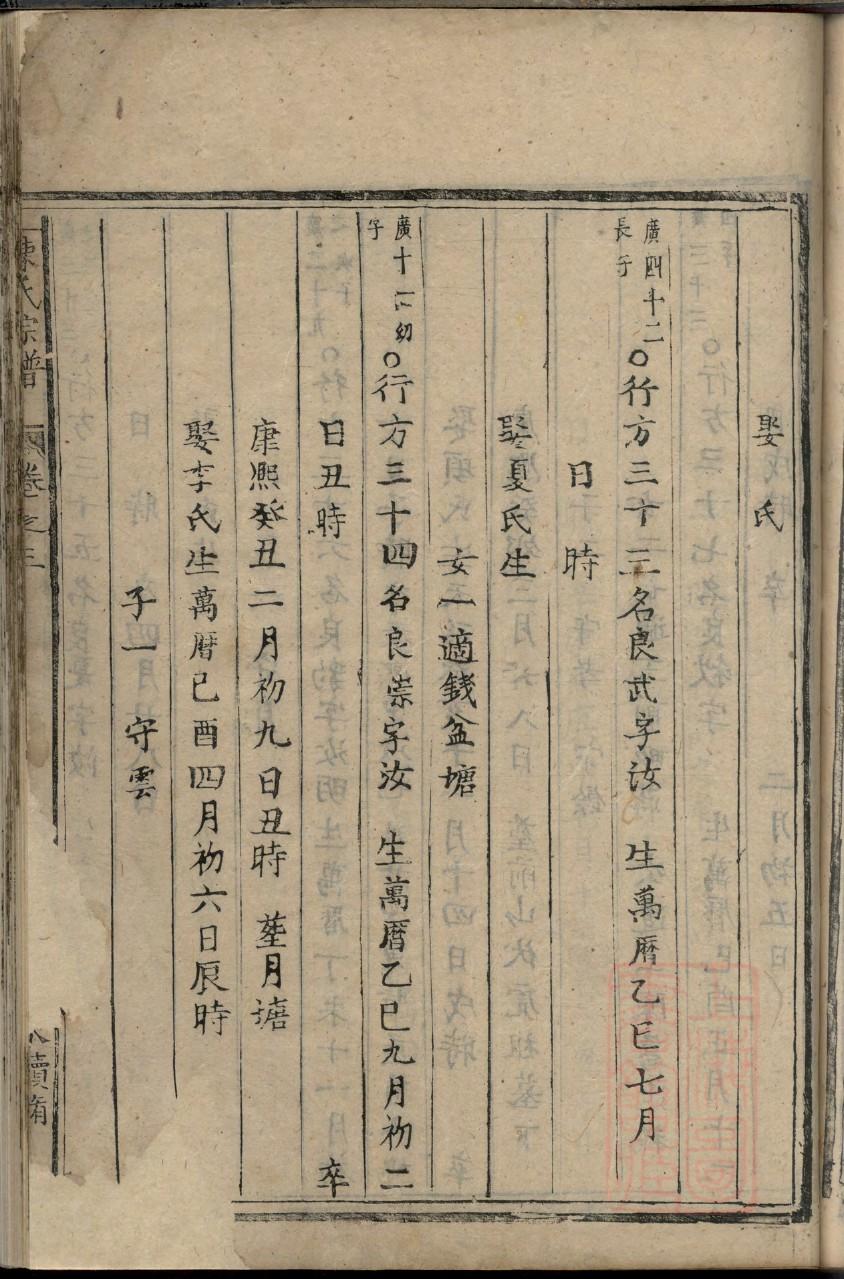 娶 氏
廣四十二長子
○行方三十三名良武字汝 生萬曆乙巳七月
日 時
娶夏氏生
女一適錢盆塘
廣十一幼子
○行方三十四名良崇字汝 生萬曆乙巳九月初二
日丑時 卒
康熙癸丑二月初九日丑時 葬月塘
娶李氏生萬曆己酉四月初六日辰時
子一 守雲
陳氏宗譜 卷之三